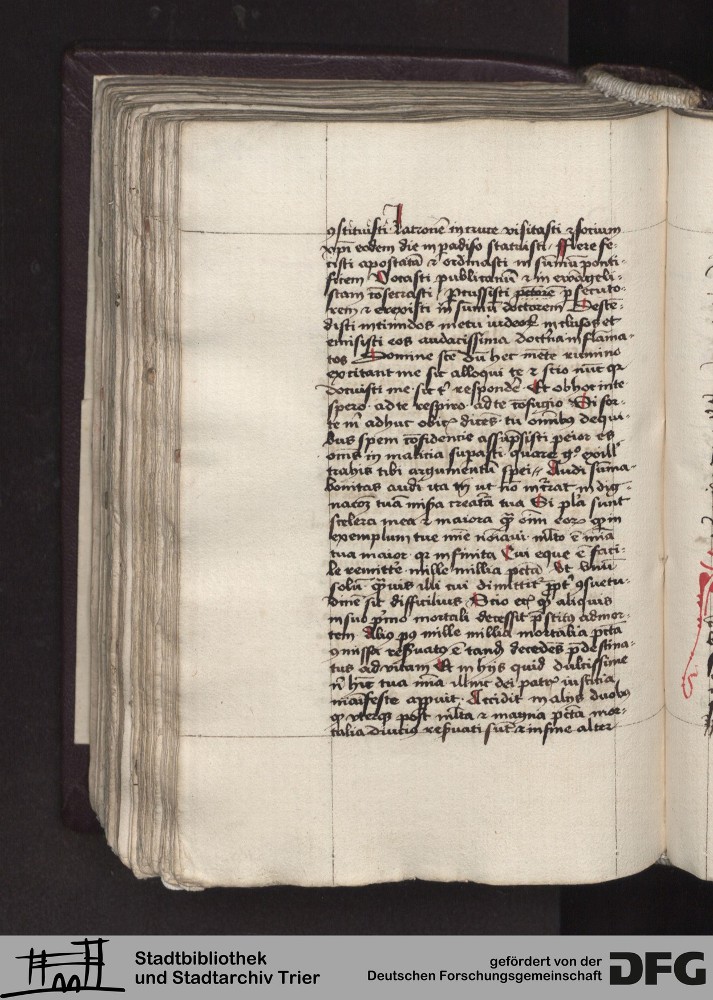 ꝯstituisti Latronē in cruce visitasti ⁊ socium
xp̄i eodem die in padiso statuisti
cisti apostatā ⁊ ordinasti in sūmū ponti-
ficem Vocasti publicanū ⁊ in ewāgeli-
stam cōsecrasti ꝑcussisti ꝑsecuto-
rem ⁊ erexisti in sūmū doctorem
disti in timidos metu iudeoꝝ inclusos et
emisisti eos audacissima doctⁱna inflāma-
tos Domine scē dū hec mēte rumino
excitant me sic alloqui te ⁊ scio nūc qꝛ
docuisti me sic t' respondē Et ob hoc in te
spero ad te respiro ad te cōfugio Si for-
te m̄ adhuc obic dices tu om̄ibꝰ de qui-
bus spem cōfidencie assūpsisti peior es
om̄s in malicia supasti quare gͦ
trahis tibi argumentū spei Audi sūma
bonitas audi ita tn̄ ut nō in dig-
nacōꝫ tuā mīsa creatā tua Si pl'a sunt
scelera mea ⁊ maiora qꝫ om̄i eoꝝ
exemplum tue mīe mlto ē mīa
tua maior qꝛ infinita Cui eque ē faci-
le remitte mille millia pctā Et vnū
solū qꝫuis illi cui dimittit ꝓpt' ꝯsuetu-
dinē sit difficilius Scio ecꝭ qꝫ aliquis
in suo pͥmo mortali decessit ad mor-
tem Aliꝰ pꝰ mille millia mortalia pctā
ꝯmissa ē tandē decedēs pͥdestina-
tus ad vitam Et in hijs quid dulcissime
n̄ hīc tua mīa illinc dei patris iusticia
māifeste appuit Accidit in alijs duobꝰ
qꝫ vterqꝫ post mlta ⁊ magna pctā mor-
talia diucius reſuati sūt ⁊ in fine alter
Stadtbibliothek
und Stadtarchiv Trier
gefördert von der
Deutschen Forschungsgemeinschaft
DFG